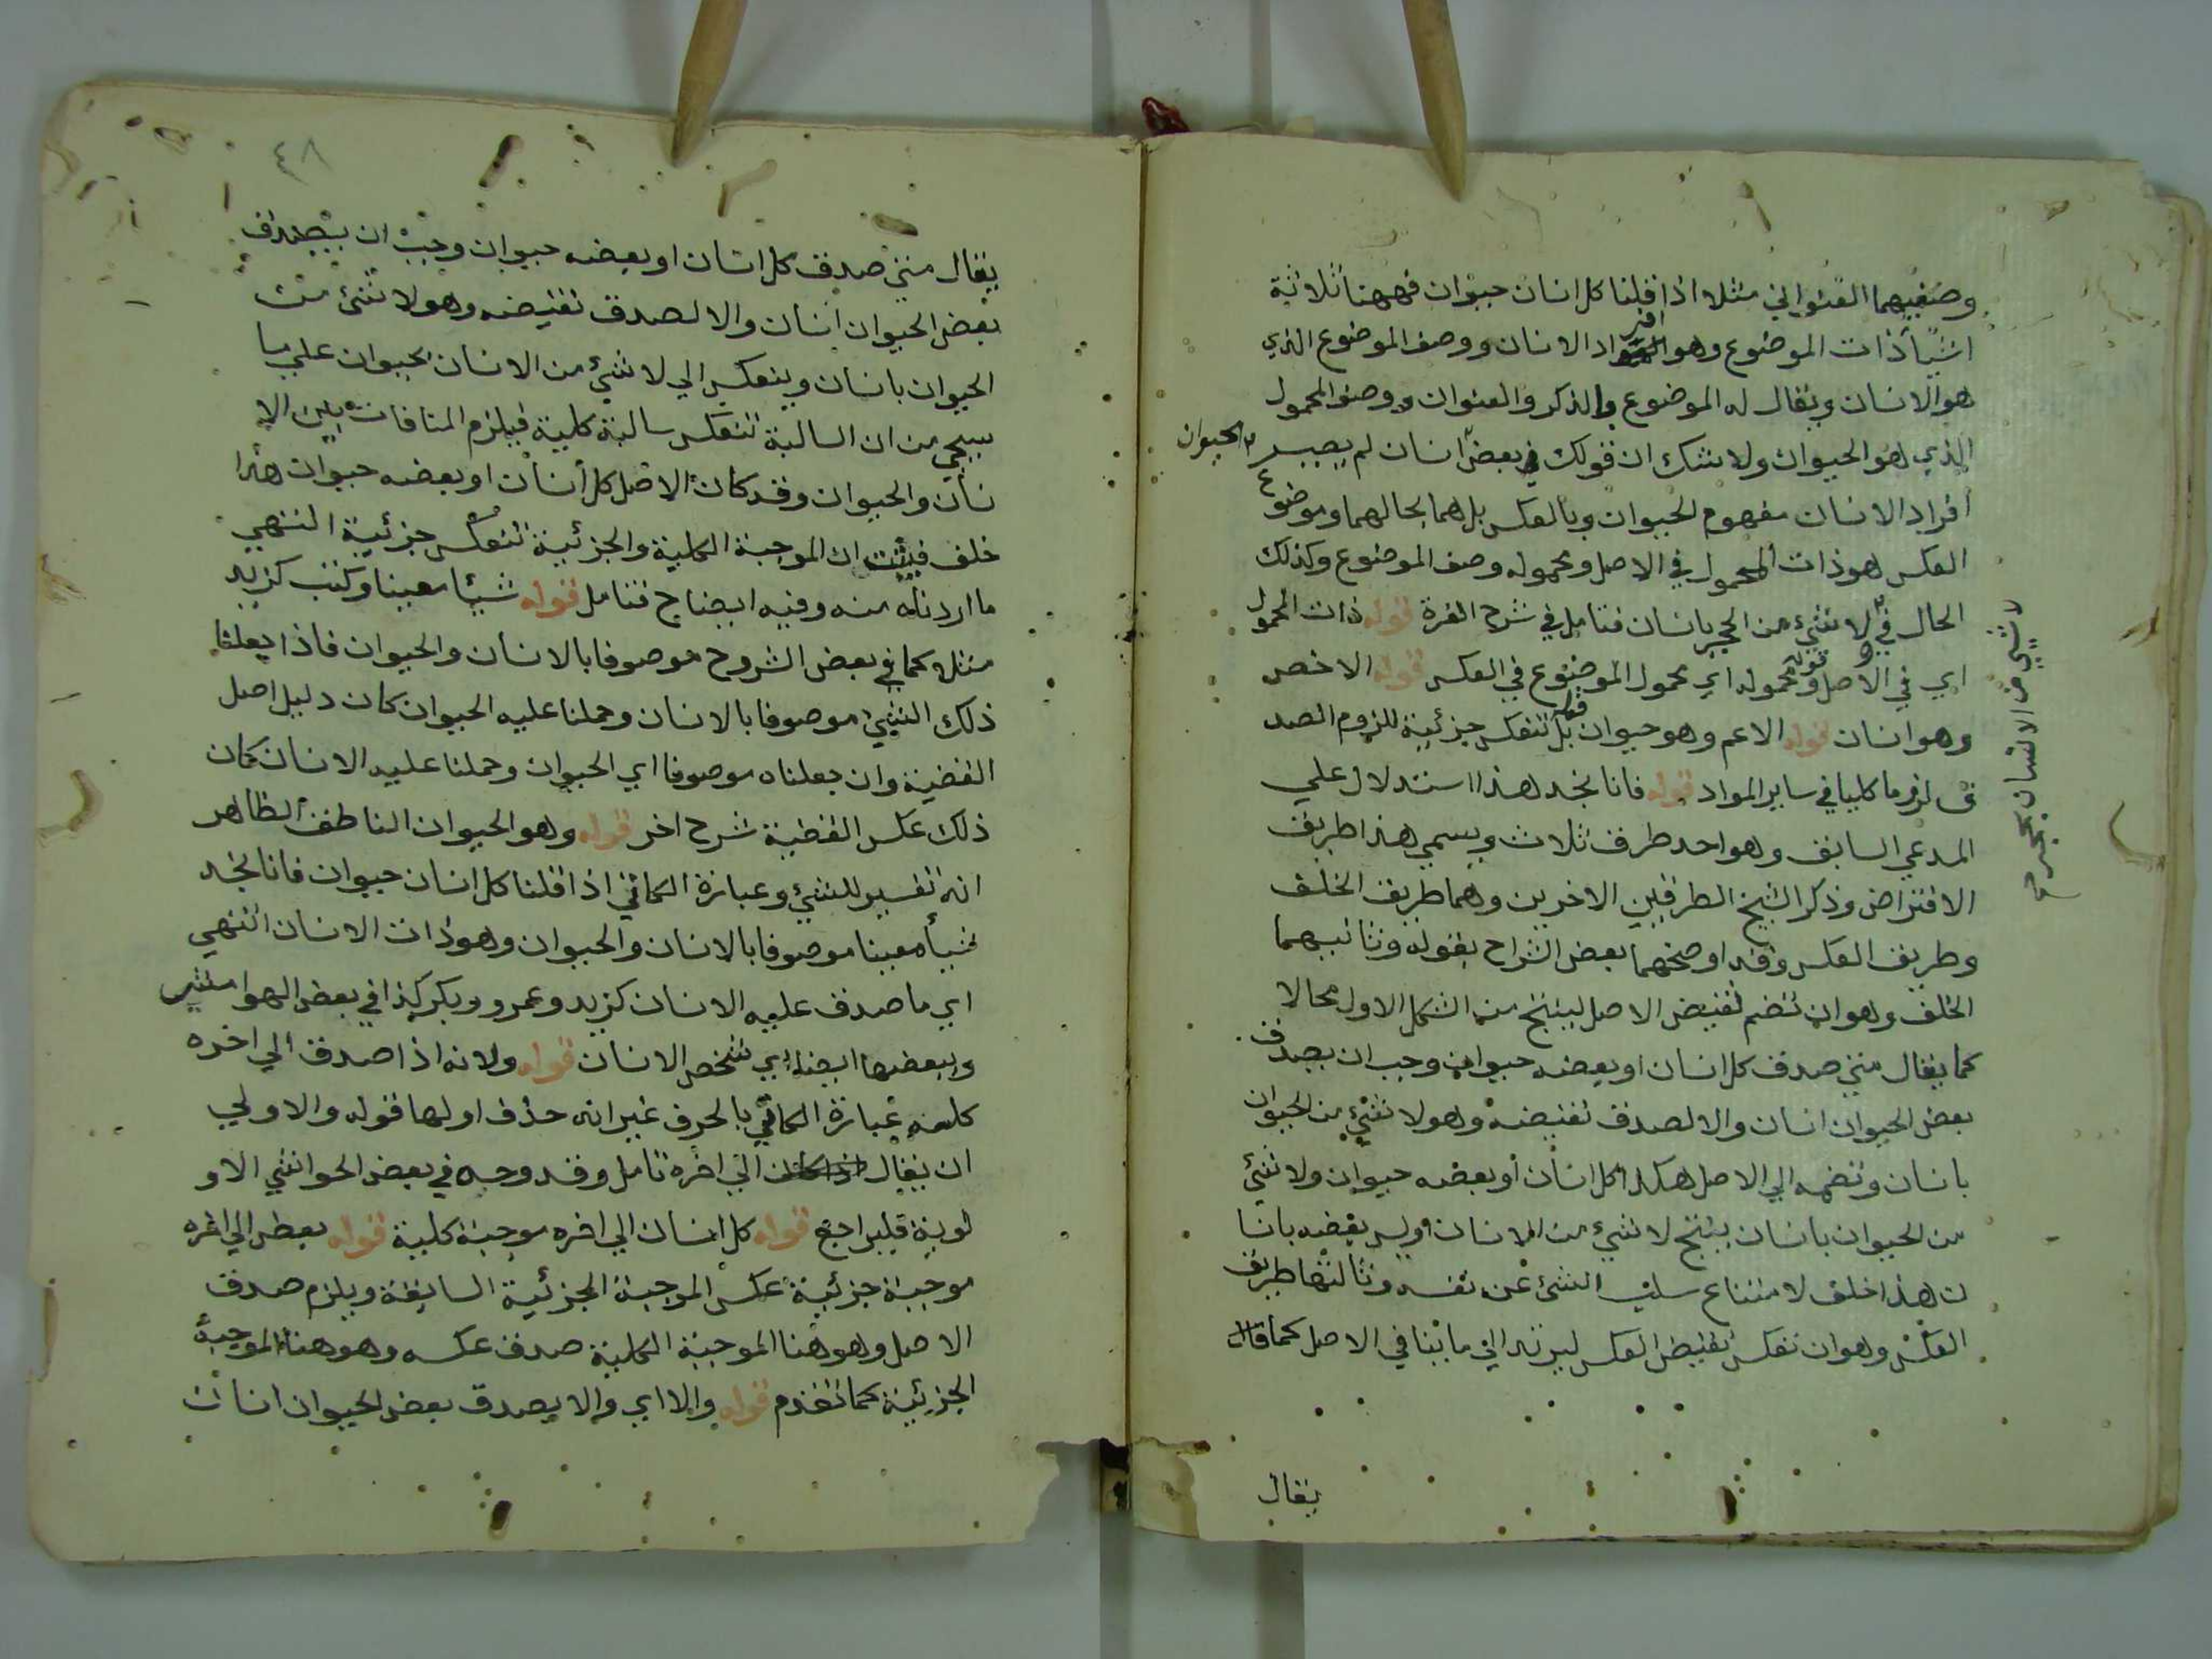 وصفيهما العنواني مثلا اذا قلنا كل انسان حيوان فههنا ثلاثة
اشيأ ذات الموضوع وهو افراد الانسان ووصف الموضوع الذي
هو الانسان ويقال له الموضوع والذكر والعنوان ووصف المحمول
الذي هو الحيوان ولا شك ان قولك في بعض انسان لم يصير الحيوان
افراد الانسان مفهوم الحيوان وبالعكس بل هما بحالهما وموضوع
العكس هو ذات المحمول في الاصل ومحموله وصف الموضوع وكذلك
الحال في لا شيء من الحجر بانسان فتامل في شرح الغرة قوله ذات المحمول
لا شيئ من الانسان بحجر صح
اي في الاصل قوله ومحموله اي محمول الموضوع في العكس قوله الاخص
وهو انسان قوله الاعم وهو حيوان قوله بل تنعكس جزئية للزوم الصد
ق لزوما كليا في ساير المواد قوله فانا نجد هذا استدلال علي
المدعي السابق وهو احد طرق ثلاث ويسمي هذا طريق
الافتراض وذكر الشيخ الطرقين الاخرين وهما طريق الخلف
وطريق العكس وقد اوضحهما بعض الشراح بقوله وثانيهما
الخلف وهو ان تضم نقيض الاصل لينتج من الشكل الاول محالا
كما يقال متي صدق كل انسان او بعضه حيوان وجب ان يصدق
بعض الحيوان انسان والا لصدق نقيضه وهو لا شيء من الحيوان
بانسان وتضمه الي الاصل هكذا كل انسان او بعضه حيوان ولا شيئ
من الحيوان بانسان ينتج لا شيء من الانسان او ليس بعضه بانسا
ن هذا خلف لامتناع سلب الشئ عن نفسه وثالثها طريق
العكس وهو ان تعكس نقيض العكس ليرتد الي ما ينافي الاصل كما قال
يقال
٤٨
يقال متي صدق كل انسان او بعضه حيوان وجب ان يصدق
بعض الحيوان انسان والا لصدق نقيضه وهو لا شئ من
الحيوان بانسان وينعكس الي لا شئ من الانسان بحيوان علي ما
سيجي من ان السالبة تنعكس سالبة كلية فيلزم المنافات بين الا
نسان والحيوان وقد كان الاصل كل انسان او بعضه حيوان هذا
خلف فيثبت ان الموجبة الكلية والجزئية تنعكس جزئية انتهي
ما اردناه منه وفيه ايضاح فتامل قوله شيئا معينا وكتب كزيد
مثلا كما في بعض الشروح موصوفا بالانسان والحيوان فاذا جعلنا
ذلك الشيئ موصوفا بالانسان وحملنا عليه الحيوان كان دليل اصل
القضية وان جعلناه موصوفا اي الحيوان وحملنا عليه الانسان كان
ذلك عكس القضية شرح اخر قوله وهو الحيوان الناطق الظاهر
انه تفسير للشئ وعبارة الكاتي اذا قلنا كل انسان حيوان فانا نجد
شيأ معينا موصوفا بالانسان والحيوان وهو ذات الانسان انتهي
اي ما صدق عليه الانسان كزيد وعمرو وبكر كذا في بعض الهوامش
وببعضها ايضا اي شخص الانسان قوله ولانه اذا صدق الي اخره
كلمنه عبارة الكاتي بالحرف غير انه حذف اولها قوله والاولي
ان يقال الي اخره تامل وقد وجه في بعض الحواشي الاو
لوية فليراجع قوله كل انسان الي اخره موجبة كلية قوله بعض الي اخره
موجبة جزئية عكس الموجبة الجزئية السابقة ويلزم صدق
الاصل وهو هنا الموجبة الكلية صدق عكسه وهو هنا الموجبة
الجزئية كما تقدم قوله والا اي والا يصدق بعض الحيوان انسان